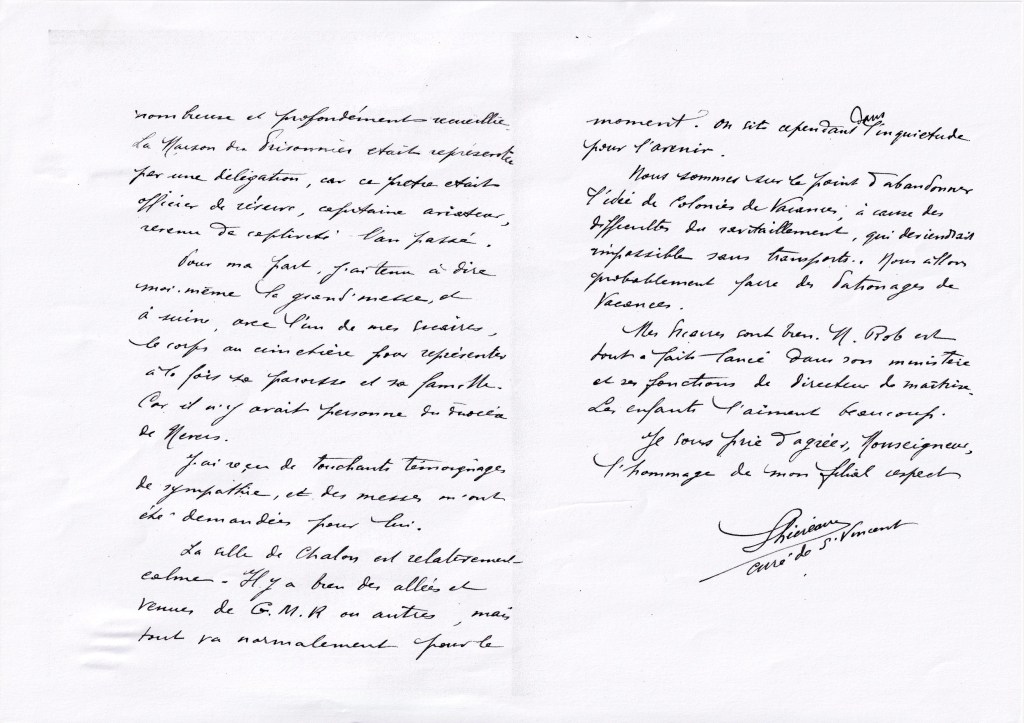 nombreuse et profondément recueillie.
La Maison du Prisonnier etait représentée
par une délégation, car ce prêtre etait
officier de réserve, capitaine aviateur,
revenu de captivité l'an passé.
Pour ma part, j'ai tenu à dire
moi-même la grand'messe, et
à suivre, avec l'un de mes vicaires,
le corps au cimetière pour représenter
à la fois sa paroisse et sa famille.
Car il n'y avait personne du diocèse
de Nevers.
J'ai reçu de touchants témoignages
de sympathie, et des messes m'ont
été demandées pour lui.
La ville de Chalon est relativement
calme. Il y a bien des allées et
venues de G.M.R ou autres, mais
tout va normalement pour le
moment. On vit cependant dans l'inquietude
pour l'avenir.
Nous sommes sur le point d'abandonner
l'idée de Colonies de Vacances, à cause des
difficultés du ravitaillement, qui deviendrait
impossible sans transports.. Nous allons
probablement faire des Patronages de
Vacances.
Mes Vicaires vont bien. M. Rob est
tout à fait lancé dans son ministère
et ses fonctions de directeur de maîtrise.
Les enfants l'aiment beaucoup.
Je vous prie d'agréer, Monseigneur,
l'hommage de mon filial respect
curé de St Vincent